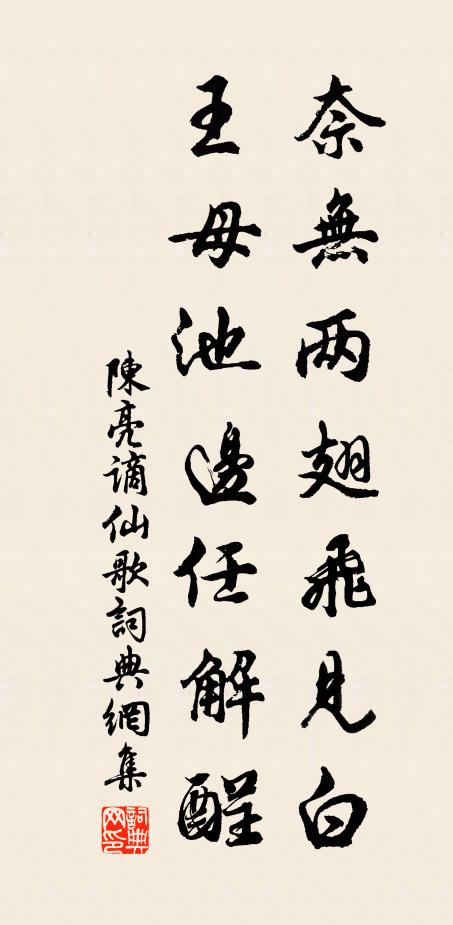 奈無兩翅飛見白
王母池邊任解酲
陳亮謫仙歌詞典網集
詞典網印